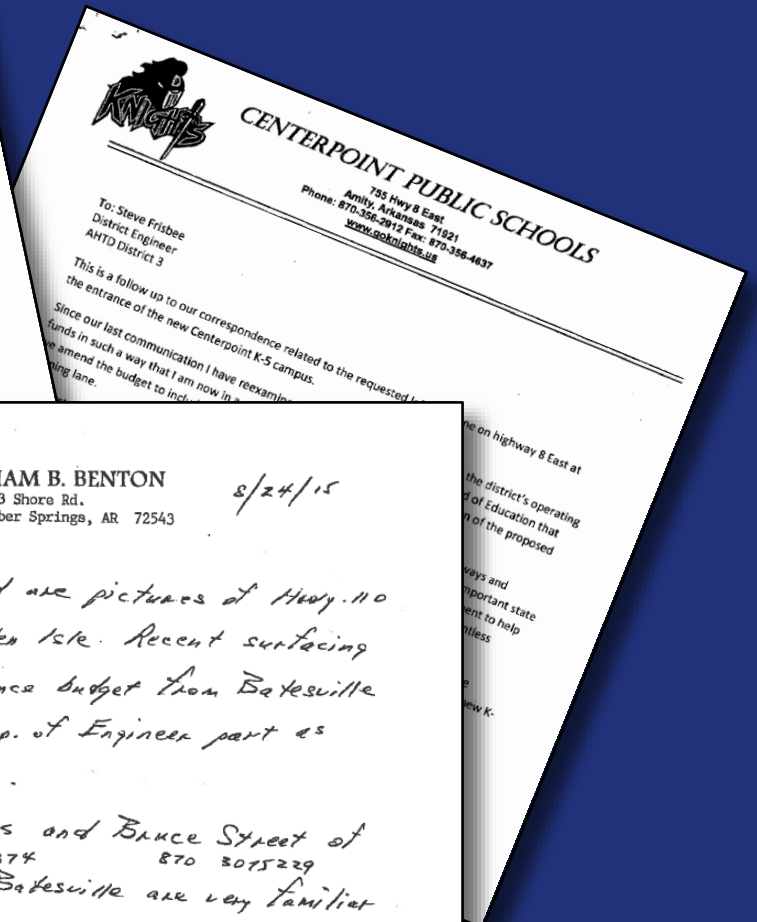 KNIGHTS
CENTERPOINT PUBLIC SCHOOLS
755 Hwy 8 East
Amity, Arkansas 71921
Phone: 870-356-2912 Fax: 870-356-4637
www.goknights.us
To: Steve Frisbee
District Engineer
AHTD District 3
This is a follow up to our correspondence related to the requested ne on highway 8 East at
the entrance of the new Centerpoint K-5 campus.
Since our last communication I have reexamin the district's operating
funds in such a way that I am now in a d of Education that
e amend the budget to inclu n of the proposed
ning lane.
ways and
mportant state
ent to help
ntless
e
ew K-
IAM B. BENTON
3 Shore Rd.
ber Springs, AR 72543
8/24/15
d are pictures of Hwy. 110
en Isle. Recent surfacing
nce budget from Batesville
p. of Engineer part as
s and Bruce Street of
374 870 3075229
Batesville are very familiar